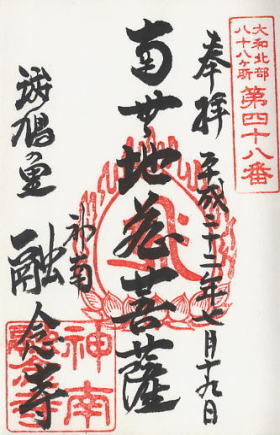 大和北部
八十八ヶ所
第四十八番
奉拝 平成二十二年七月十九日
南無地蔵菩薩
神南
斑鳩の里 融念寺
神南
融念寺